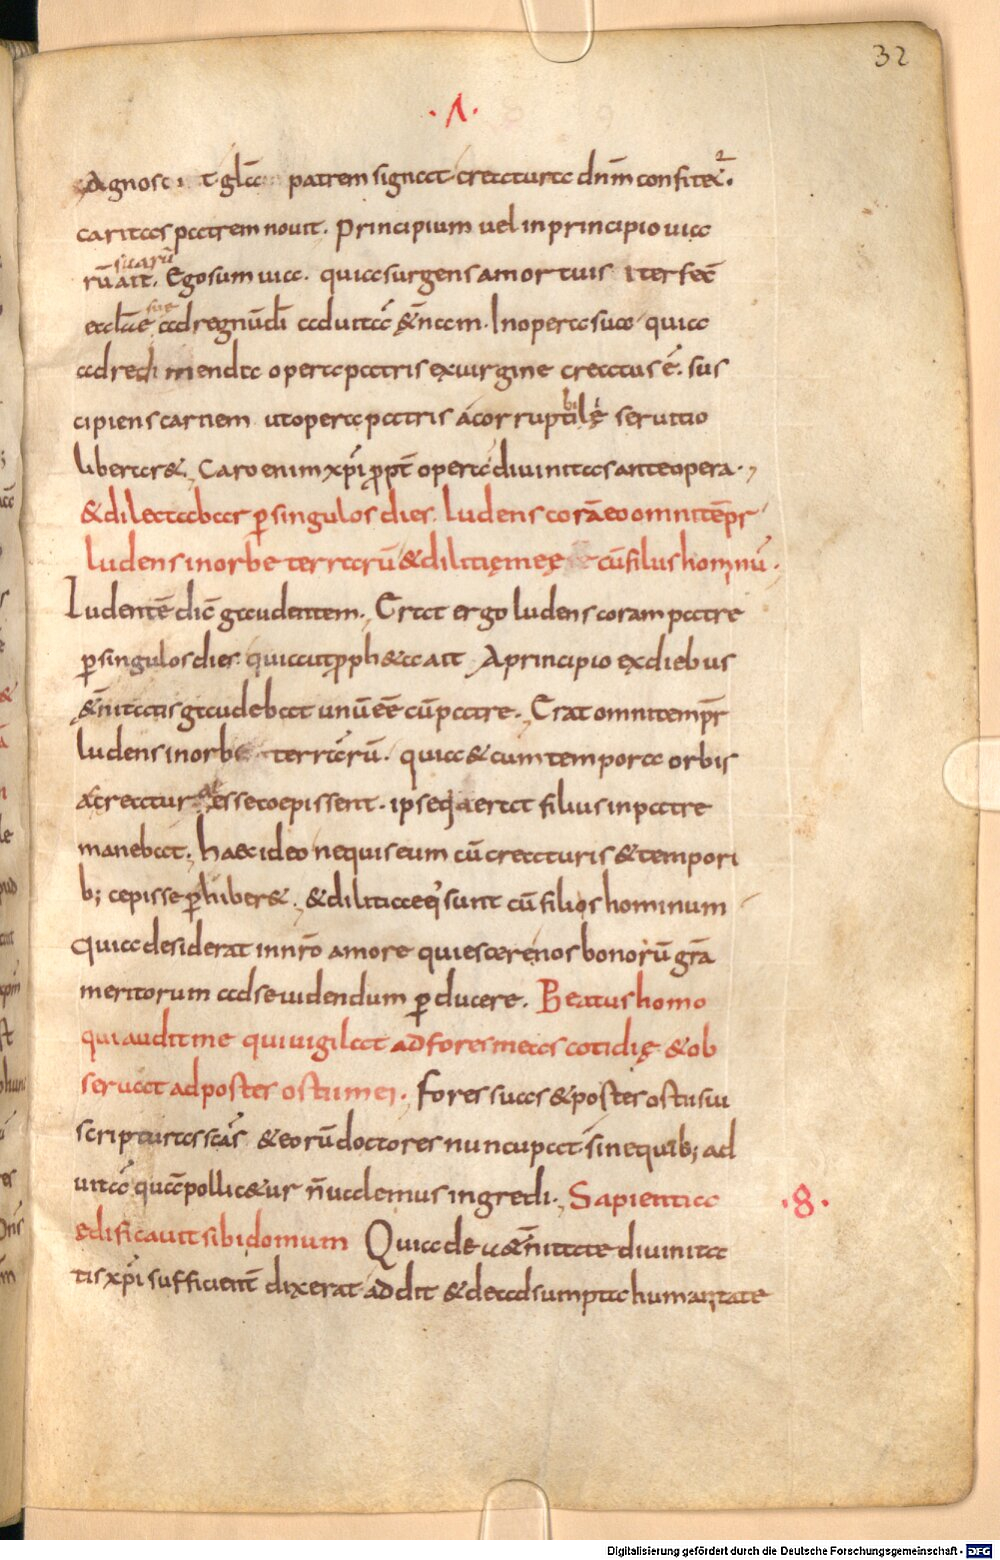 32
·Λ·
Agnosc t glā patrem signat creatura dn̄m confitet᷑.
caritas patrem nouit. Principium uel in principio uia
suarū
rū ait. Ego sum uia. quia surgens a mortuis iter fec̄
sue
eccl̄ae ad regnū dī ad uitā &n̄am. In opera sua quia
ad redimendā opera patris ex uirgine creatus ē. sus
cipiens carnem ut opera patris a corruptibilę seruitio
liberar&. Caro enim xp̄i ꝓpt̄ opera diuinitas ante opera.
& dilectabar ꝑ singulos dies. ludens corā eo omnitēpr
ludens in orbe terrarū & dilitię meę cū filius hominū.
Ludentē dic̄ gaudentem. Erat ergo ludens coram patre
ꝑ singulos dies. quia ut ꝓph&a ait A principio ex diebus
&n̄itatis gaudebat unū eē cū patre. Erat omni tempr̄
ludens in orbe terrarū. quia & cum tempora orbis
ac creaturae esse coepissent. ipse qā erat filius in patre
manebat. haec ideo nequis eum cū creaturis & tempori
b; cepisse ꝑhiber&. & dilitiae q̄ sunt cū filios hominum
Quia desiderat in nr̄o amore quiescere nos bonorū gr̄a
meritorum ad se uidendum ꝑducere. Beatus homo
qui audit me qui uigilat ad fores meas cotidię & ob
seruat ad postes ostii mei. Fores suas & postes ostii sui
scripturas scā̄s & eorū doctores nuncupat. sine quib; ad
uitā quā pollic&ur n̄ uademus ingredi. Sapientia
·8·
edificauit sibi domum Quia de &n̄itate diuinita
tis xp̄i sufficient̄ dixerat addit & de adsumpta humanitate
Digitalisierung gefördert durch die Deutsche Forschungsgemeinschaft - DFG